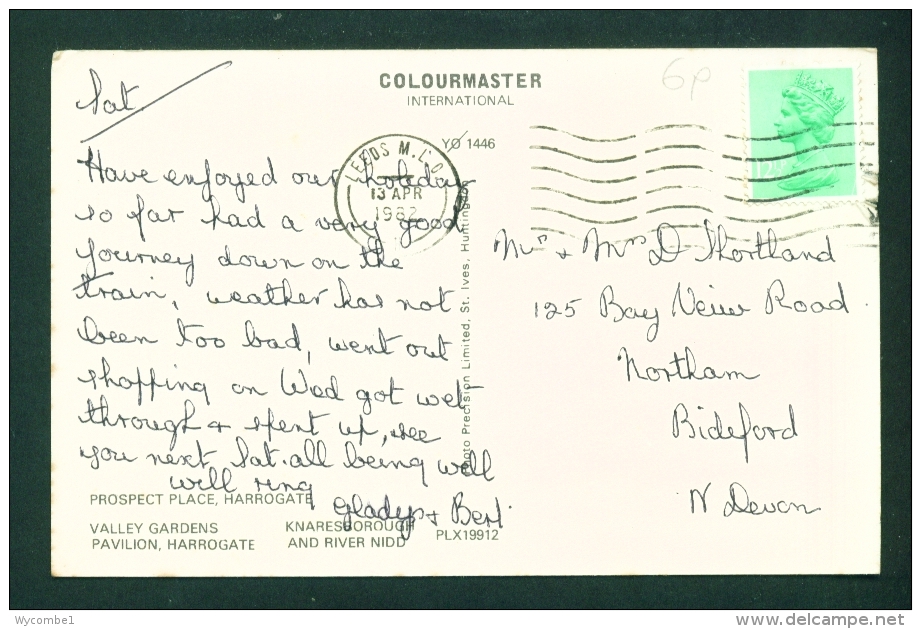 COLOURMASTER
INTERNATIONAL
6p
YO 1446
LEEDS M.L.O.
13 APR
1982
Sat
Have enjoyed our holiday
so far had a very good
journey down on the
train, weather has not
been too bad, went out
shopping on Wed got wet
through & spent up, see
you next Sat. all being well
will ring
Gladys & Bert
Mr & Mrs D Shortland
125 Bay Veiw Road
Northam
Bideford
N Devon
Photo Precision Limited, St. Ives, Huntingdon
PROSPECT PLACE, HARROGATE
VALLEY GARDENS
PAVILION, HARROGATE
KNARESBOROUGH
AND RIVER NIDD
PLX19912
Wycombe1
delcampe.net